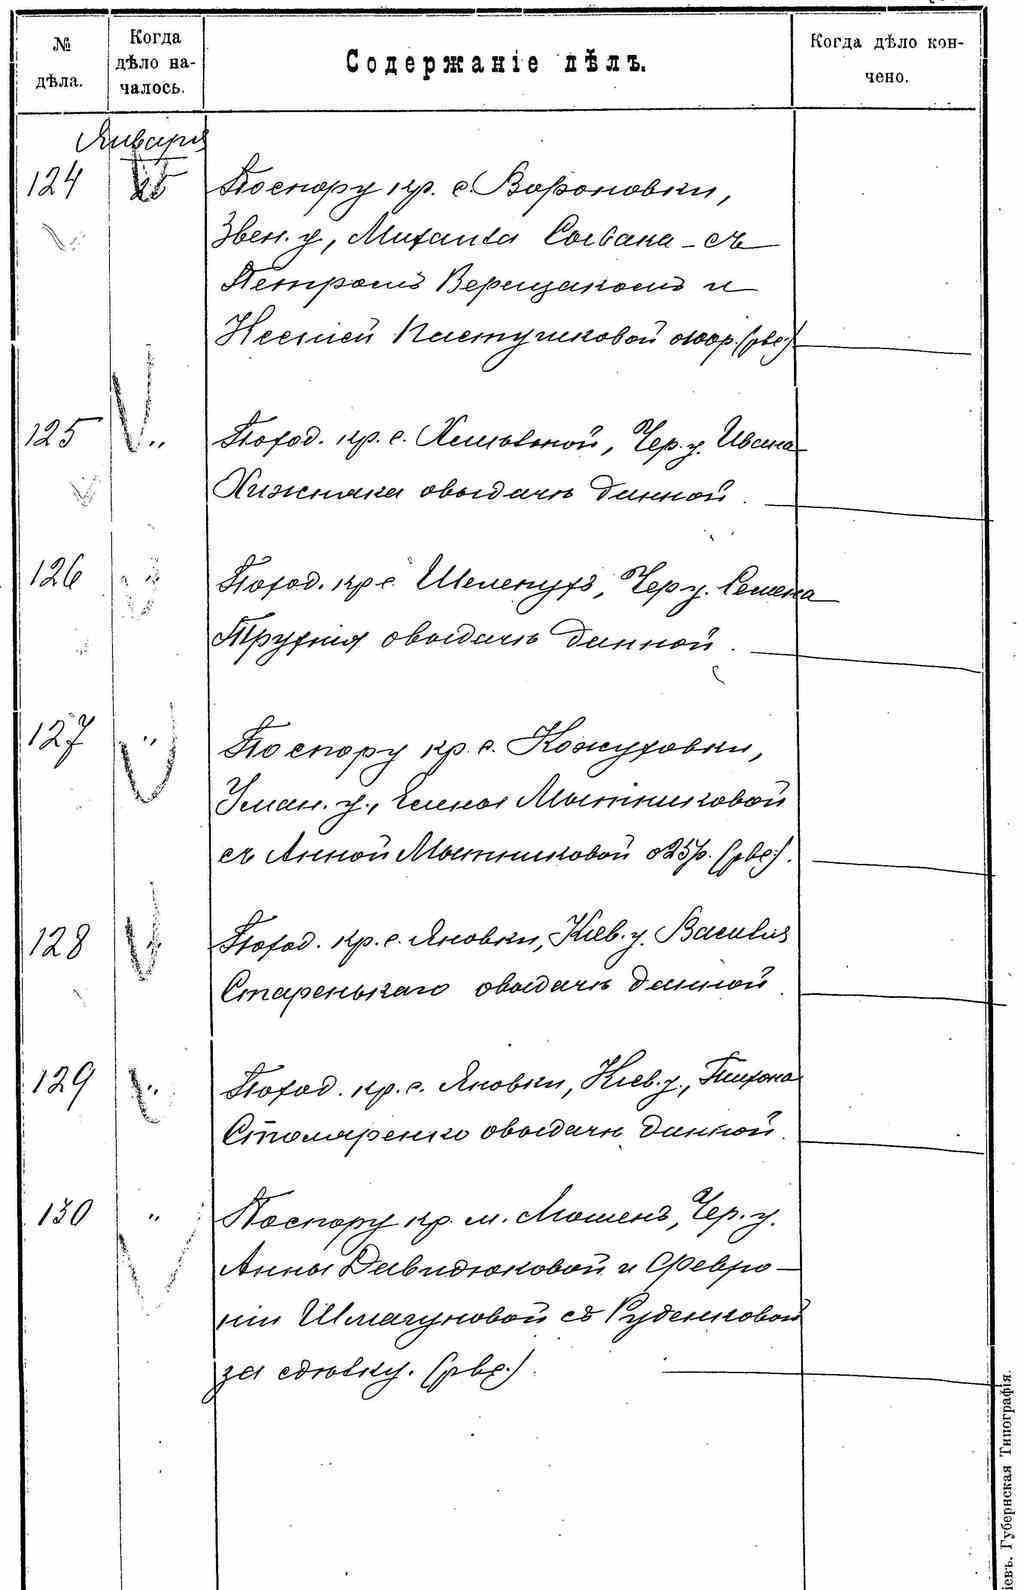 № дѣла.
Когда дѣло на-
чалось.
Содержаніе дѣлъ.
Когда дѣло кон-
чено.
Января
124 25 По спору кр. с. Вороновки,
Звен. у., Михаила Соввака - съ
Петромъ Верещакомъ и
Пастушковой (рве.)
125 " По ход. кр. с. Хлыстной, Чер. у. Ивана
Хижняка о выдачѣ данной.
126 " По ход. кр. с. Шелепухъ, Чер. у. Семена
Трухнія о выдачѣ данной.
127 " По спору кр. с. Кожуховки,
Уман. у., Елены Мытниковой
съ Анной Мытниковой о 25 р. (рве.).
128 " По ход. кр. с. Яновки, Кіев. у. Василія
Старенькаго о выдачѣ данной.
129 " По ход. кр. с. Яновки, Кіев. у., Тихона
Столяренко о выдачѣ данной.
130 " По спору кр. м. Мошенъ, Чер. у.
Анны Давидюковой и Февро-
ніи Шмагуновой съ Руденковой
за сдѣлку. (рве.)
іевъ. Губернская Типографія.